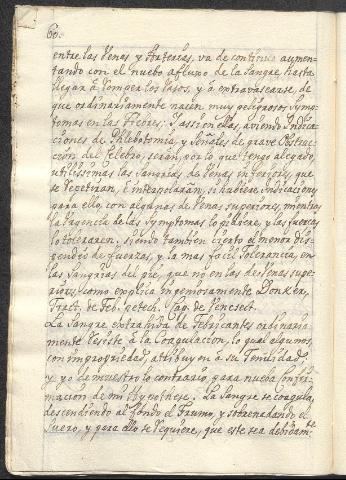 60.
entre las Venas y Arterias, va de continuo aumen-
tando con el nuebo afluxo de la Sangre, hasta
llegar à romper los vasos, y à extravasarse, de
que ordinariamente nacen muy peligrosos Symp-
tomas en las Fiebres: Y assi en ellas, aviendo Indica-
ciones de Phlebotomia, y Señales de grave Obstruc-
cion del Celebro, serán, por lo que tengo alegado,
utilissimas las Sangrias de Venas inferiores, que
se repetiran, è interpolaran, si hubiere Indicacion
para ello con algunas de Venas superiores, mientras
la urgencia de los Symptomas lo pidiere, y las fuerzas
lo toleraren. Siendo tambien cierto el menor dis-
pendio de fuerzas, y la mas facil Tolerancia, en
las Sangrias del pie, que nò en las de Venas supe-
riores, como explica ingeniosamente Donker,
Tract. de Feb. petech. Cap. de Venesect.
La Sangre extrahida de Febricitantes ordinaria-
mente resiste à la Coagulacion, lo qual algunos,
con impropriedad, attribuyen à su Tenuidad:
y yo demuestro lo contrario, para nueba Confir-
macion de mi Hypothese. La Sangre se coagula,
descendiendo al fondo el Grumo, y sobrenadando el
suero, y para ello se requiere, que este sea debidamte